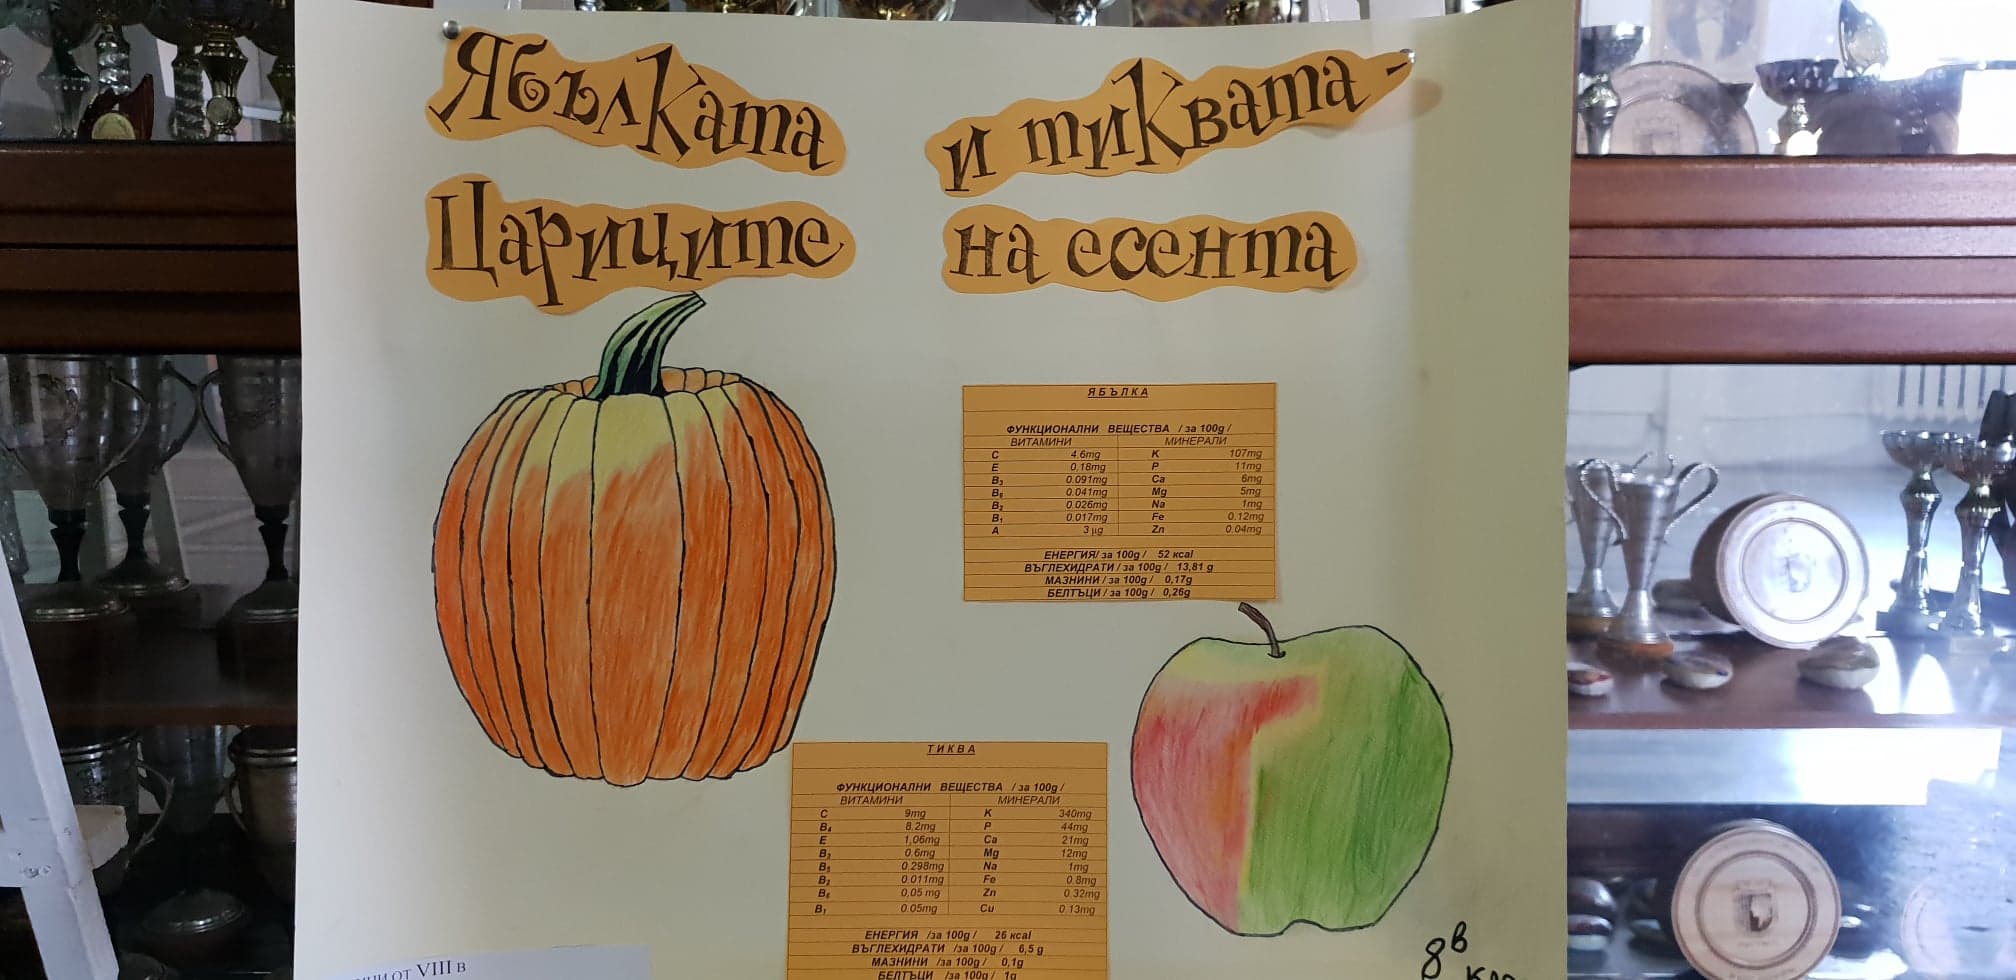 Ябълката и тиквата -
Цариците на есента
ЯБЪЛКА
ФУНКЦИОНАЛНИ ВЕЩЕСТВА / за 100g /
ВИТАМИНИ МИНЕРАЛИ
C 4.6mg K 107mg
E 0,18mg P 11mg
B3 0.091mg Ca 6mg
B6 0.041mg Mg 5mg
B2 0.026mg Na 1mg
B1 0.017mg Fe 0.12mg
A 3 µg Zn 0.04mg
ЕНЕРГИЯ/ за 100g / 52 kcal
ВЪГЛЕХИДРАТИ / за 100g / 13,81 g
МАЗНИНИ / за 100g / 0,17g
БЕЛТЪЦИ / за 100g / 0,26g
ТИКВА
ФУНКЦИОНАЛНИ ВЕЩЕСТВА / за 100g /
ВИТАМИНИ МИНЕРАЛИ
C 9mg K 340mg
B4 8,2mg P 44mg
E 1,06mg Ca 21mg
B3 0.6mg Mg 12mg
B5 0.298mg Na 1mg
B2 0.011mg Fe 0.8mg
B6 0,05 mg Zn 0.32mg
B1 0.05mg Cu 0.13mg
ЕНЕРГИЯ /за 100g / 26 kcal
ВЪГЛЕХИДРАТИ /за 100g / 6,5 g
МАЗНИНИ /за 100g / 0,1g
БЕЛТЪЦИ /за 100g / 1g
8в
от VIII в